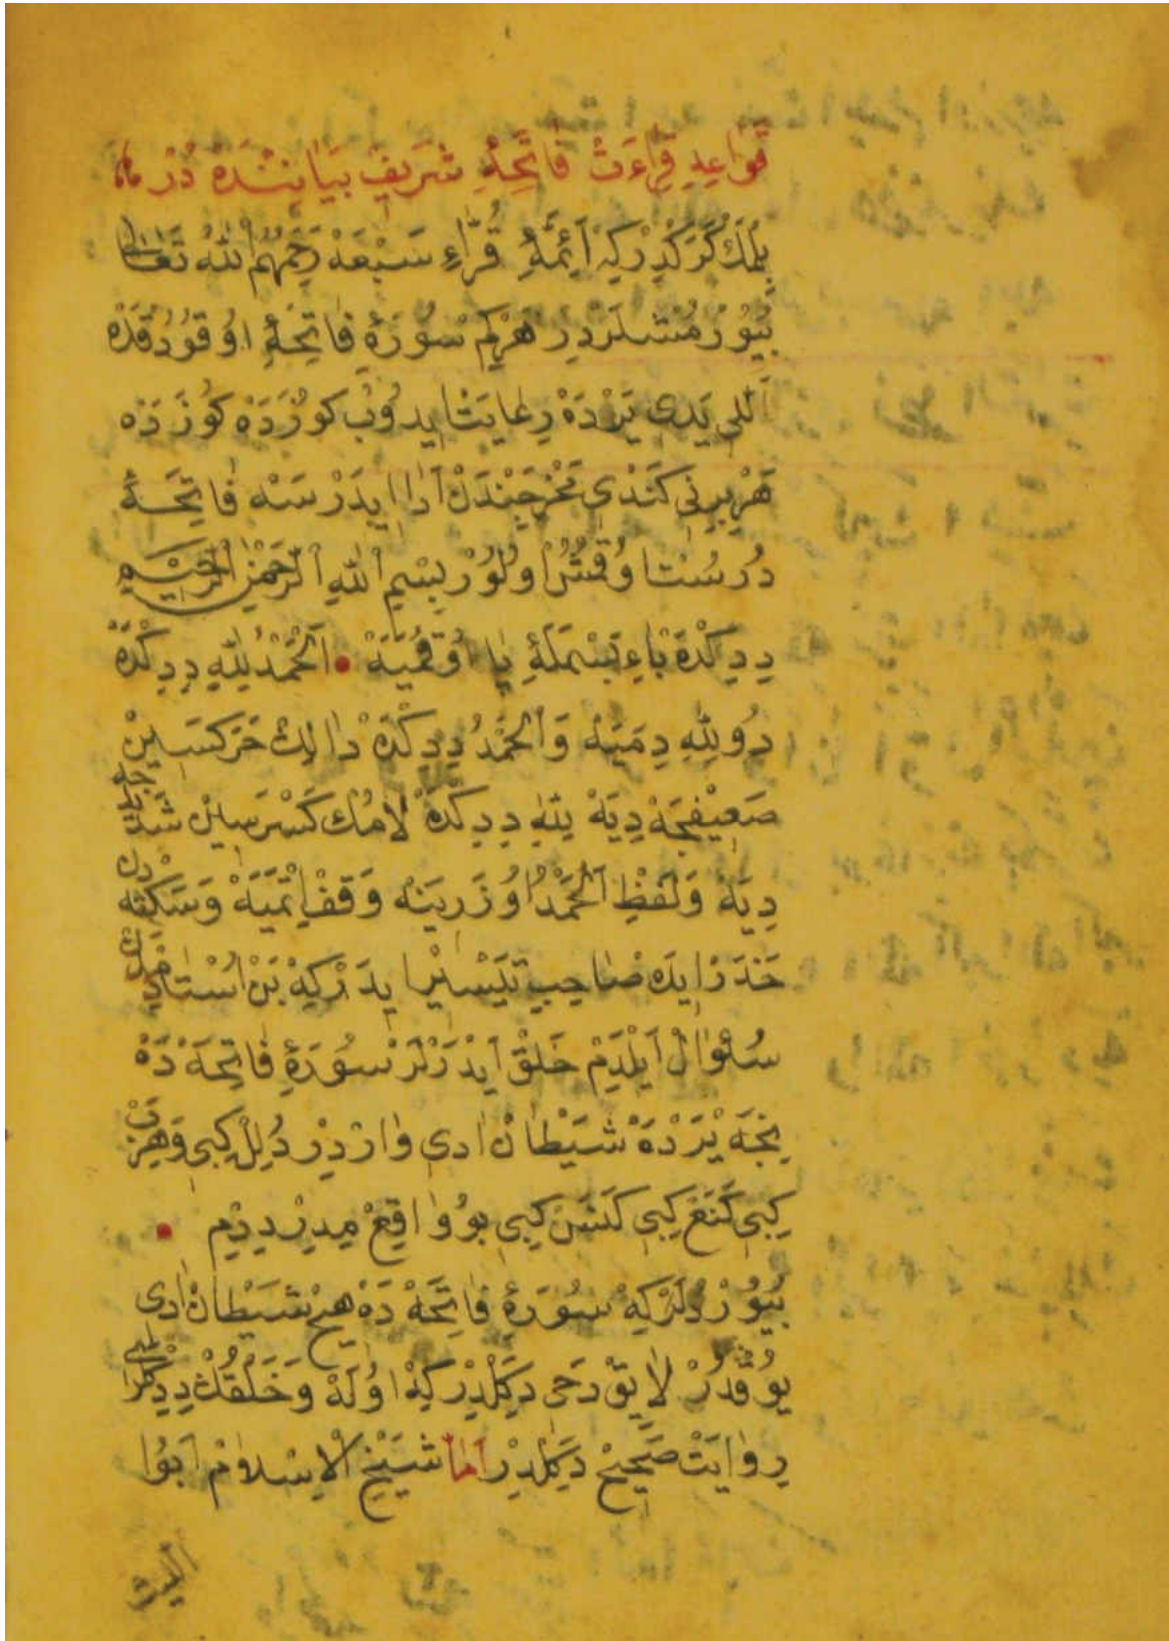 قَوَاعِدِ قِرَاءَتْ فَاتِحَهِٔ شَرِيفْ بَيَانِنْدَهْ دُرْ
بِلْمَكْ كَرَكْدِرْ كِهْ اَئِمَّهِٔ قُرَّاءِ سَبْعَهْ رَحِمَهُمُ اللّٰهُ تَعَالٰى
بُيُورْمُشْلَرْدِرْ هَرْ كِمْ سُورَهِٔ فَاتِحَهِٔ اوُقُودُقَدَهْ
اَللِى يَدِى يَرْدَهْ رِعَايَتْ اِيدُوبْ كوُزَدَهْ كوُزَدَهْ
هَرْ بِرِنِى كَنْدِى مَخْرَجِنْدَنْ اَدَا اِيدَرْسَهْ فَاتِحَهِٔ
دُرُسْتْ اوُقُمُشْ اوُلُورْ بِسْمِ اللّٰهِ الرَّحْمٰنِ الرَّحِيمِ
دِدِكْدَهْ بَاءِ بَسْمَلَهِٔ يَا اوُقُمَيَهْ • اَلْحَمْدُ لِلّٰهِ دِدِكْدَهْ
دُولِلّٰهِ دِمَيَهْ وَاَلْحَمْدُ دِدِكْدَهْ دَالِكْ حَرَكَسِيْنْ
ضَعِيْفْجَهْ دِيَهْ لِلّٰهِ دِدِكْدَهْ لَامُكْ كَسْرَسِيْنْ شَدِّيدْجَهْ
دِيَهْ وَلَفْظِ اَلْحَمْدُ اوُزَرِينَهْ وَقْفْ اِتْمَيَهْ وَسَكْتَهْدَنْ
حَذَرْ اِيدَهْ صَاحِبِ تَيْسِيرْ اِيدَرْ كِهْ بَنْ اُسْتَادِمْدَنْ
سُئَوَالْ اَيْلَدِمْ خَلْقْ اَيْدَرْلَرْ سُورَهِٔ فَاتِحَهْ دَهْ
يِجَهْ يَرْدَهْ شَيْطَانْ اَدِى وَارْدِرْ دُلِلْ كِبِى وَهِرَبْ
كِبِى كَنَعْ كِبِى كَنَسْ كِبِى بوُ وَاقِعْ مِيدِرْ دِدِمْ •
بُيُورْدُلَرْ كِهْ سُورَهِٔ فَاتِحَهْ دَهْ هِيچْ شَيْطَانْ اَدِى
يوُقْدُرْ لَايِقْ دَخِى دَكِلْدِرْ كِهْ اوُلَهْ وَخَلْقُكْ دِدِكْلَرِى
رِوَايَتْ صَحِيحْ دَكِلْدِرْ اَمَّا شَيْخِ الْاِسْلَامْ اَبُوا
الليث